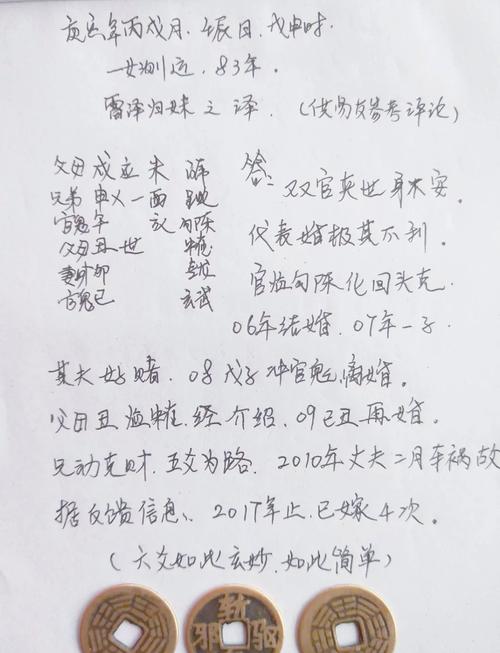 庚寅年丙戌月.壬辰日.戊申时.
一女测运.83年.
雷泽归妹之泽.(供易友参考评论)
父母戌立朱
兄弟申乂一西
官鬼午 勾陈
父母丑世
妻财卯
官鬼巳 玄武
答:双官夹世身不安.
代表婚极其不利.
官临勾陈化回头克.
06年结婚.07年一子.
其夫好赌.08戊子冲官鬼离婚.
父母丑临.经介绍.09己丑再婚.
兄动克财.五爻为路.2010年丈夫二月车祸故
据反馈信息、2017年止.已嫁4次。
(六爻如此玄妙.如此简单)
斩 邪 驱